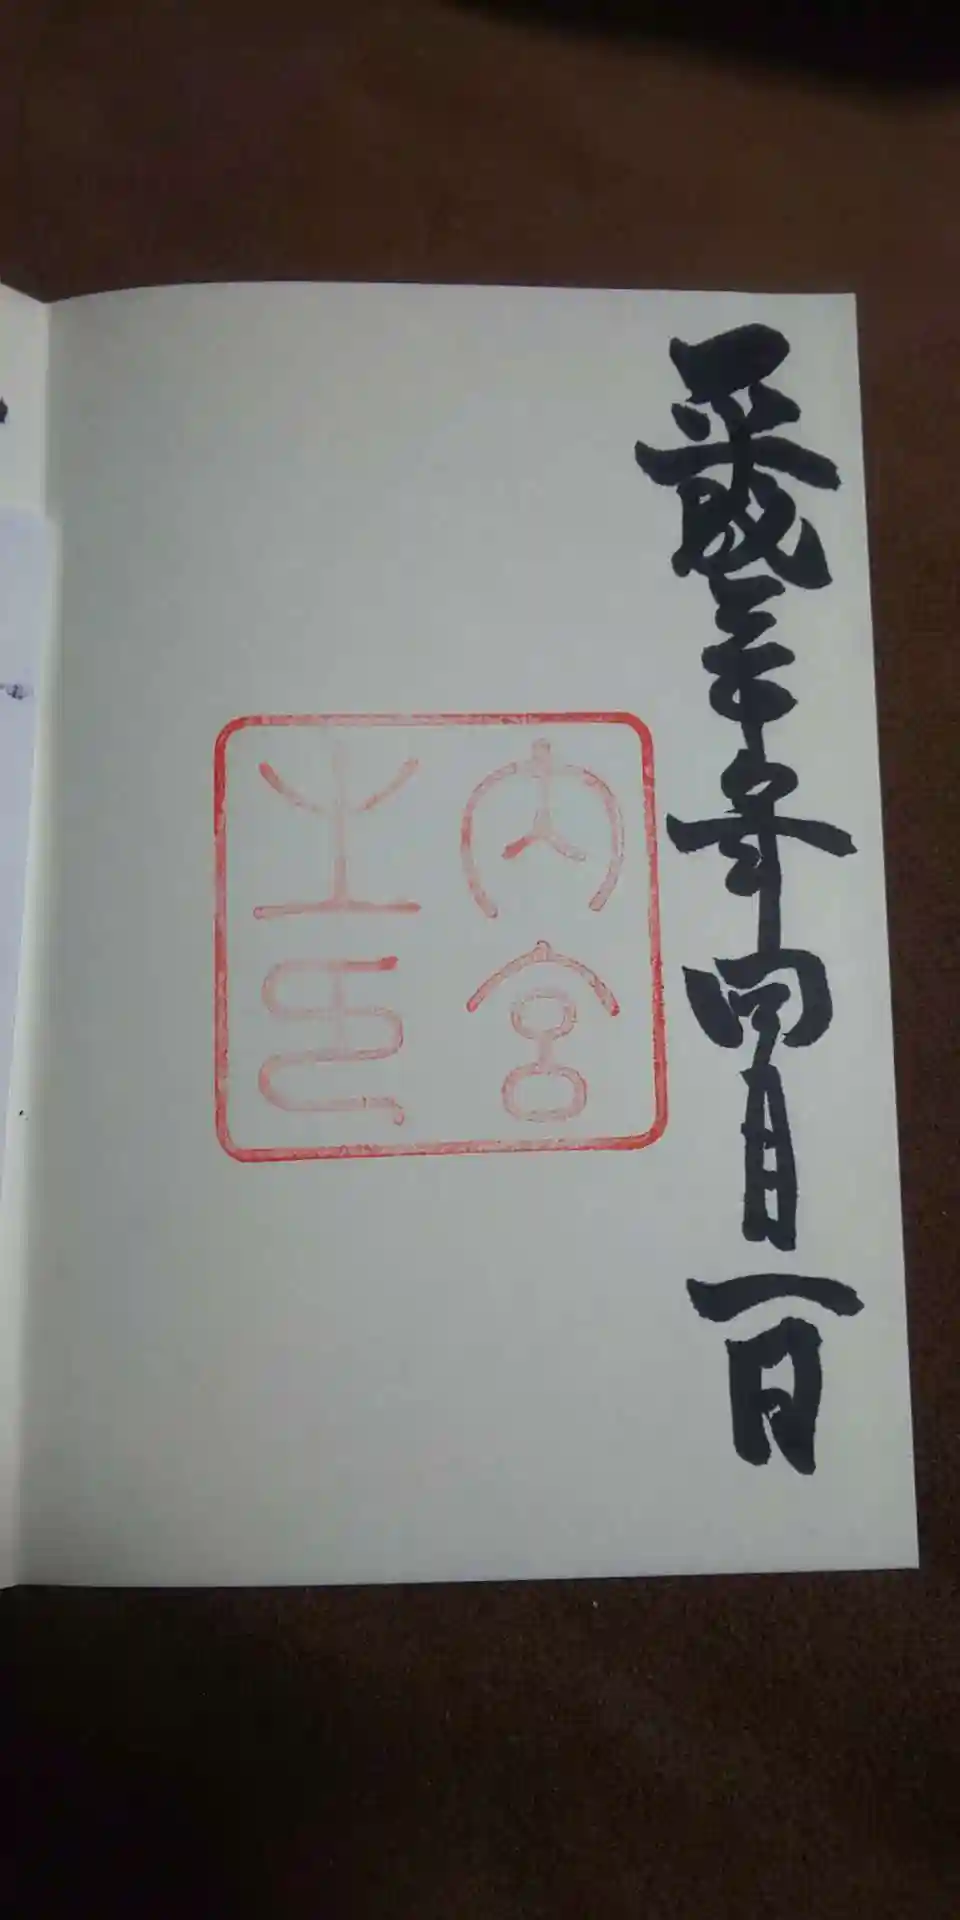 平成三十年四月一日
内宮
之印